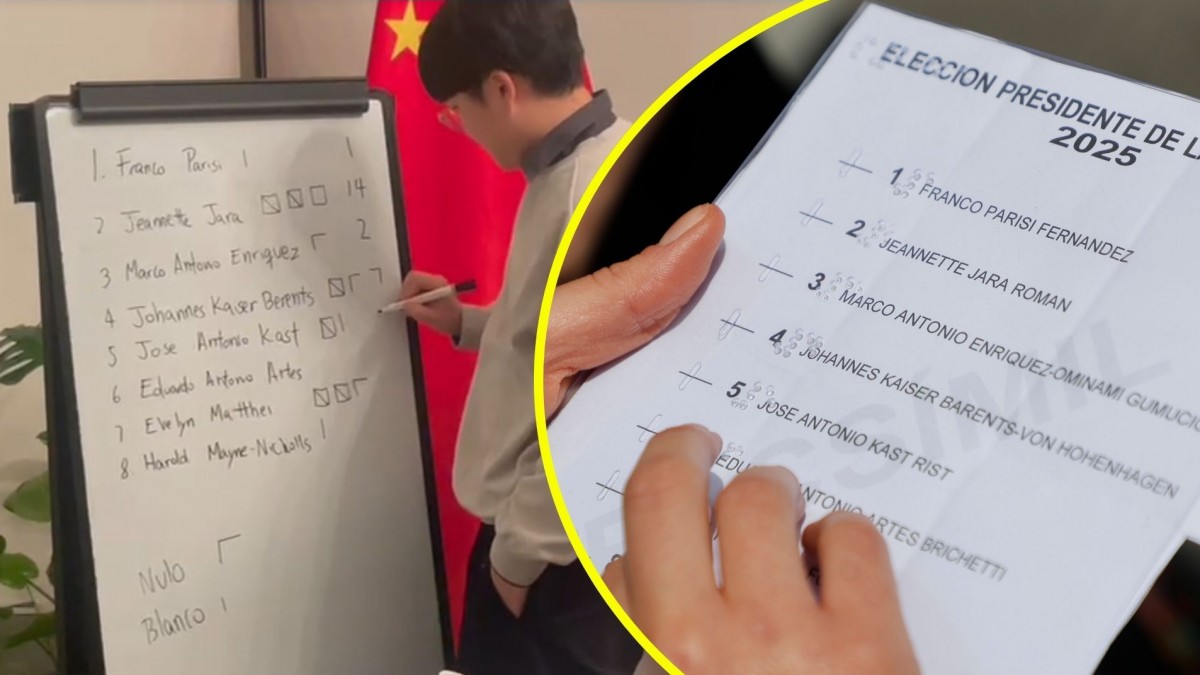 1. Franco Parisi 1
2 Jeannette Jara 14
3 Marco Antonio Enriquez 2
4 Johannes Kaiser Berents 7
5 Jose Antonio Kast
6 Eduardo Antonio Artes
7 Evelyn Matthei
8. Harold Mayne-Nicholls
Nulo
Blanco
ELECCION PRESIDENTE DE LA
2025
1 FRANCO PARISI FERNANDEZ
2 JEANNETTE JARA ROMAN
3 MARCO ANTONIO ENRIQUEZ-OMINAMI GUMUCIO
4 JOHANNES KAISER BARENTS-VON HOHENHAGEN
5 JOSE ANTONIO KAST RIST
EDU ANTONIO ARTES BRICHETTI